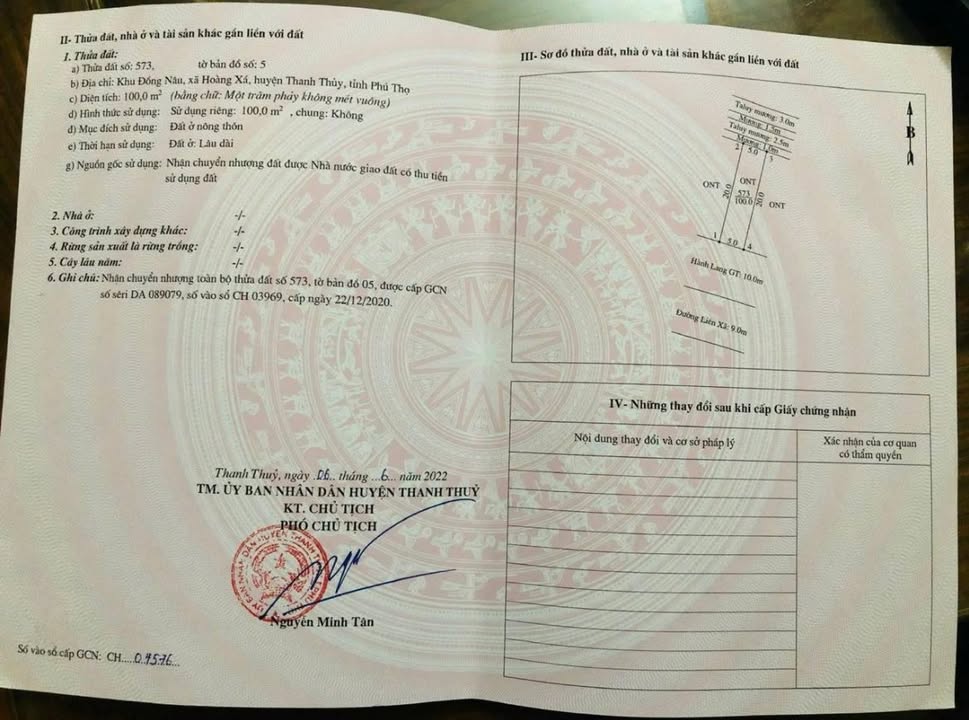 II- Thửa đất, nhà ở và tài sản khác gắn liền với đất
1. Thửa đất:
a) Thửa đất số: 573, tờ bản đồ số: 5
b) Địa chỉ: Khu Đồng Nâu, xã Hoàng Xá, huyện Thanh Thủy, tỉnh Phú Thọ
c) Diện tích: 100,0 m² (bằng chữ: Một trăm phảy không mét vuông)
d) Hình thức sử dụng: Sử dụng riêng: 100,0 m² , chung: Không
đ) Mục đích sử dụng: Đất ở nông thôn
e) Thời hạn sử dụng: Đất ở: Lâu dài
g) Nguồn gốc sử dụng: Nhận chuyển nhượng đất được Nhà nước giao đất có thu tiền
sử dụng đất
2. Nhà ở: -/-
3. Công trình xây dựng khác: -/-
4. Rừng sản xuất là rừng trồng: -/-
5. Cây lâu năm: -/-
6. Ghi chú: Nhận chuyển nhượng toàn bộ thửa đất số 573, tờ bản đồ 05, được cấp GCN
số sêri DA 089079, số vào sổ CH 03969, cấp ngày 22/12/2020.
Thanh Thuỷ, ngày .06. tháng ..6.. năm 2022
TM. ỦY BAN NHÂN DÂN HUYỆN THANH THUỶ
KT. CHỦ TỊCH
PHÓ CHỦ TỊCH
Nguyễn Minh Tân
Số vào sổ cấp GCN: CH....04576...
III- Sơ đồ thửa đất, nhà ở và tài sản khác gắn liền với đất
B
Taluy mương: 3.0m
Mương: 1.5m
Taluy mương: 2.5m
Mương: 1.0m
2 5.0 3
ONT ONT
20.0 573 20.0 ONT
100.0
1 5.0 4
Hành Lang GT: 10.0m
Đường Liên Xã: 9.0m
IV- Những thay đổi sau khi cấp Giấy chứng nhận
Nội dung thay đổi và cơ sở pháp lý
Xác nhận của cơ quan
có thẩm quyền